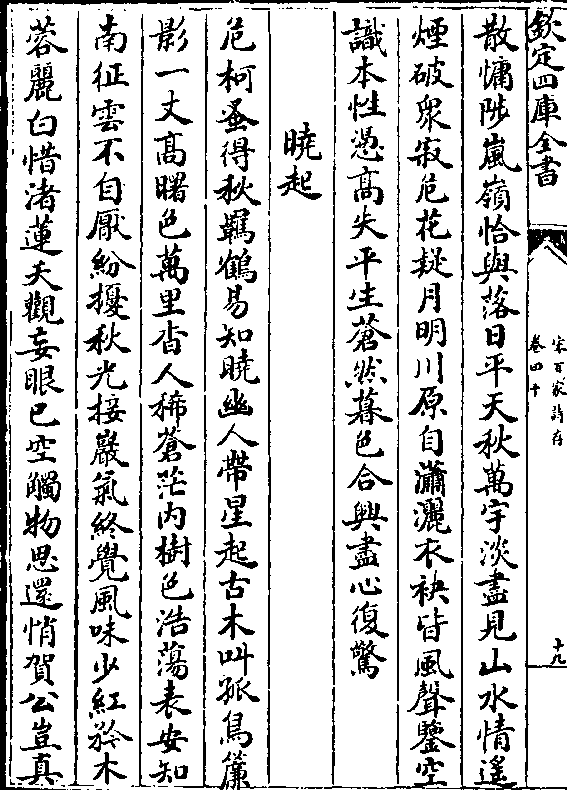 欽定四庫全書
宋百家詩存
卷四十
十九
散慵陟嵐嶺恰與落日平天秋萬宇淡盡見山水情遙
煙破衆寂危花疑月明川原自瀟灑衣袂皆風聲鑒空
識本性憑高失平生蒼然暮色合興盡心復驚
曉起
危柯蚤得秋羈鶴易知曉幽人帶星起古木叫孤鳥簾
影一丈高曙色萬里杳人稀蒼茫内樹色浩蕩表安知
南征雲不自厭紛擾秋光接巖氣終覺風味少紅矜木
蓉麗白惜渚蓮夭觀妄眼已空觸物思還悄賀公豈真